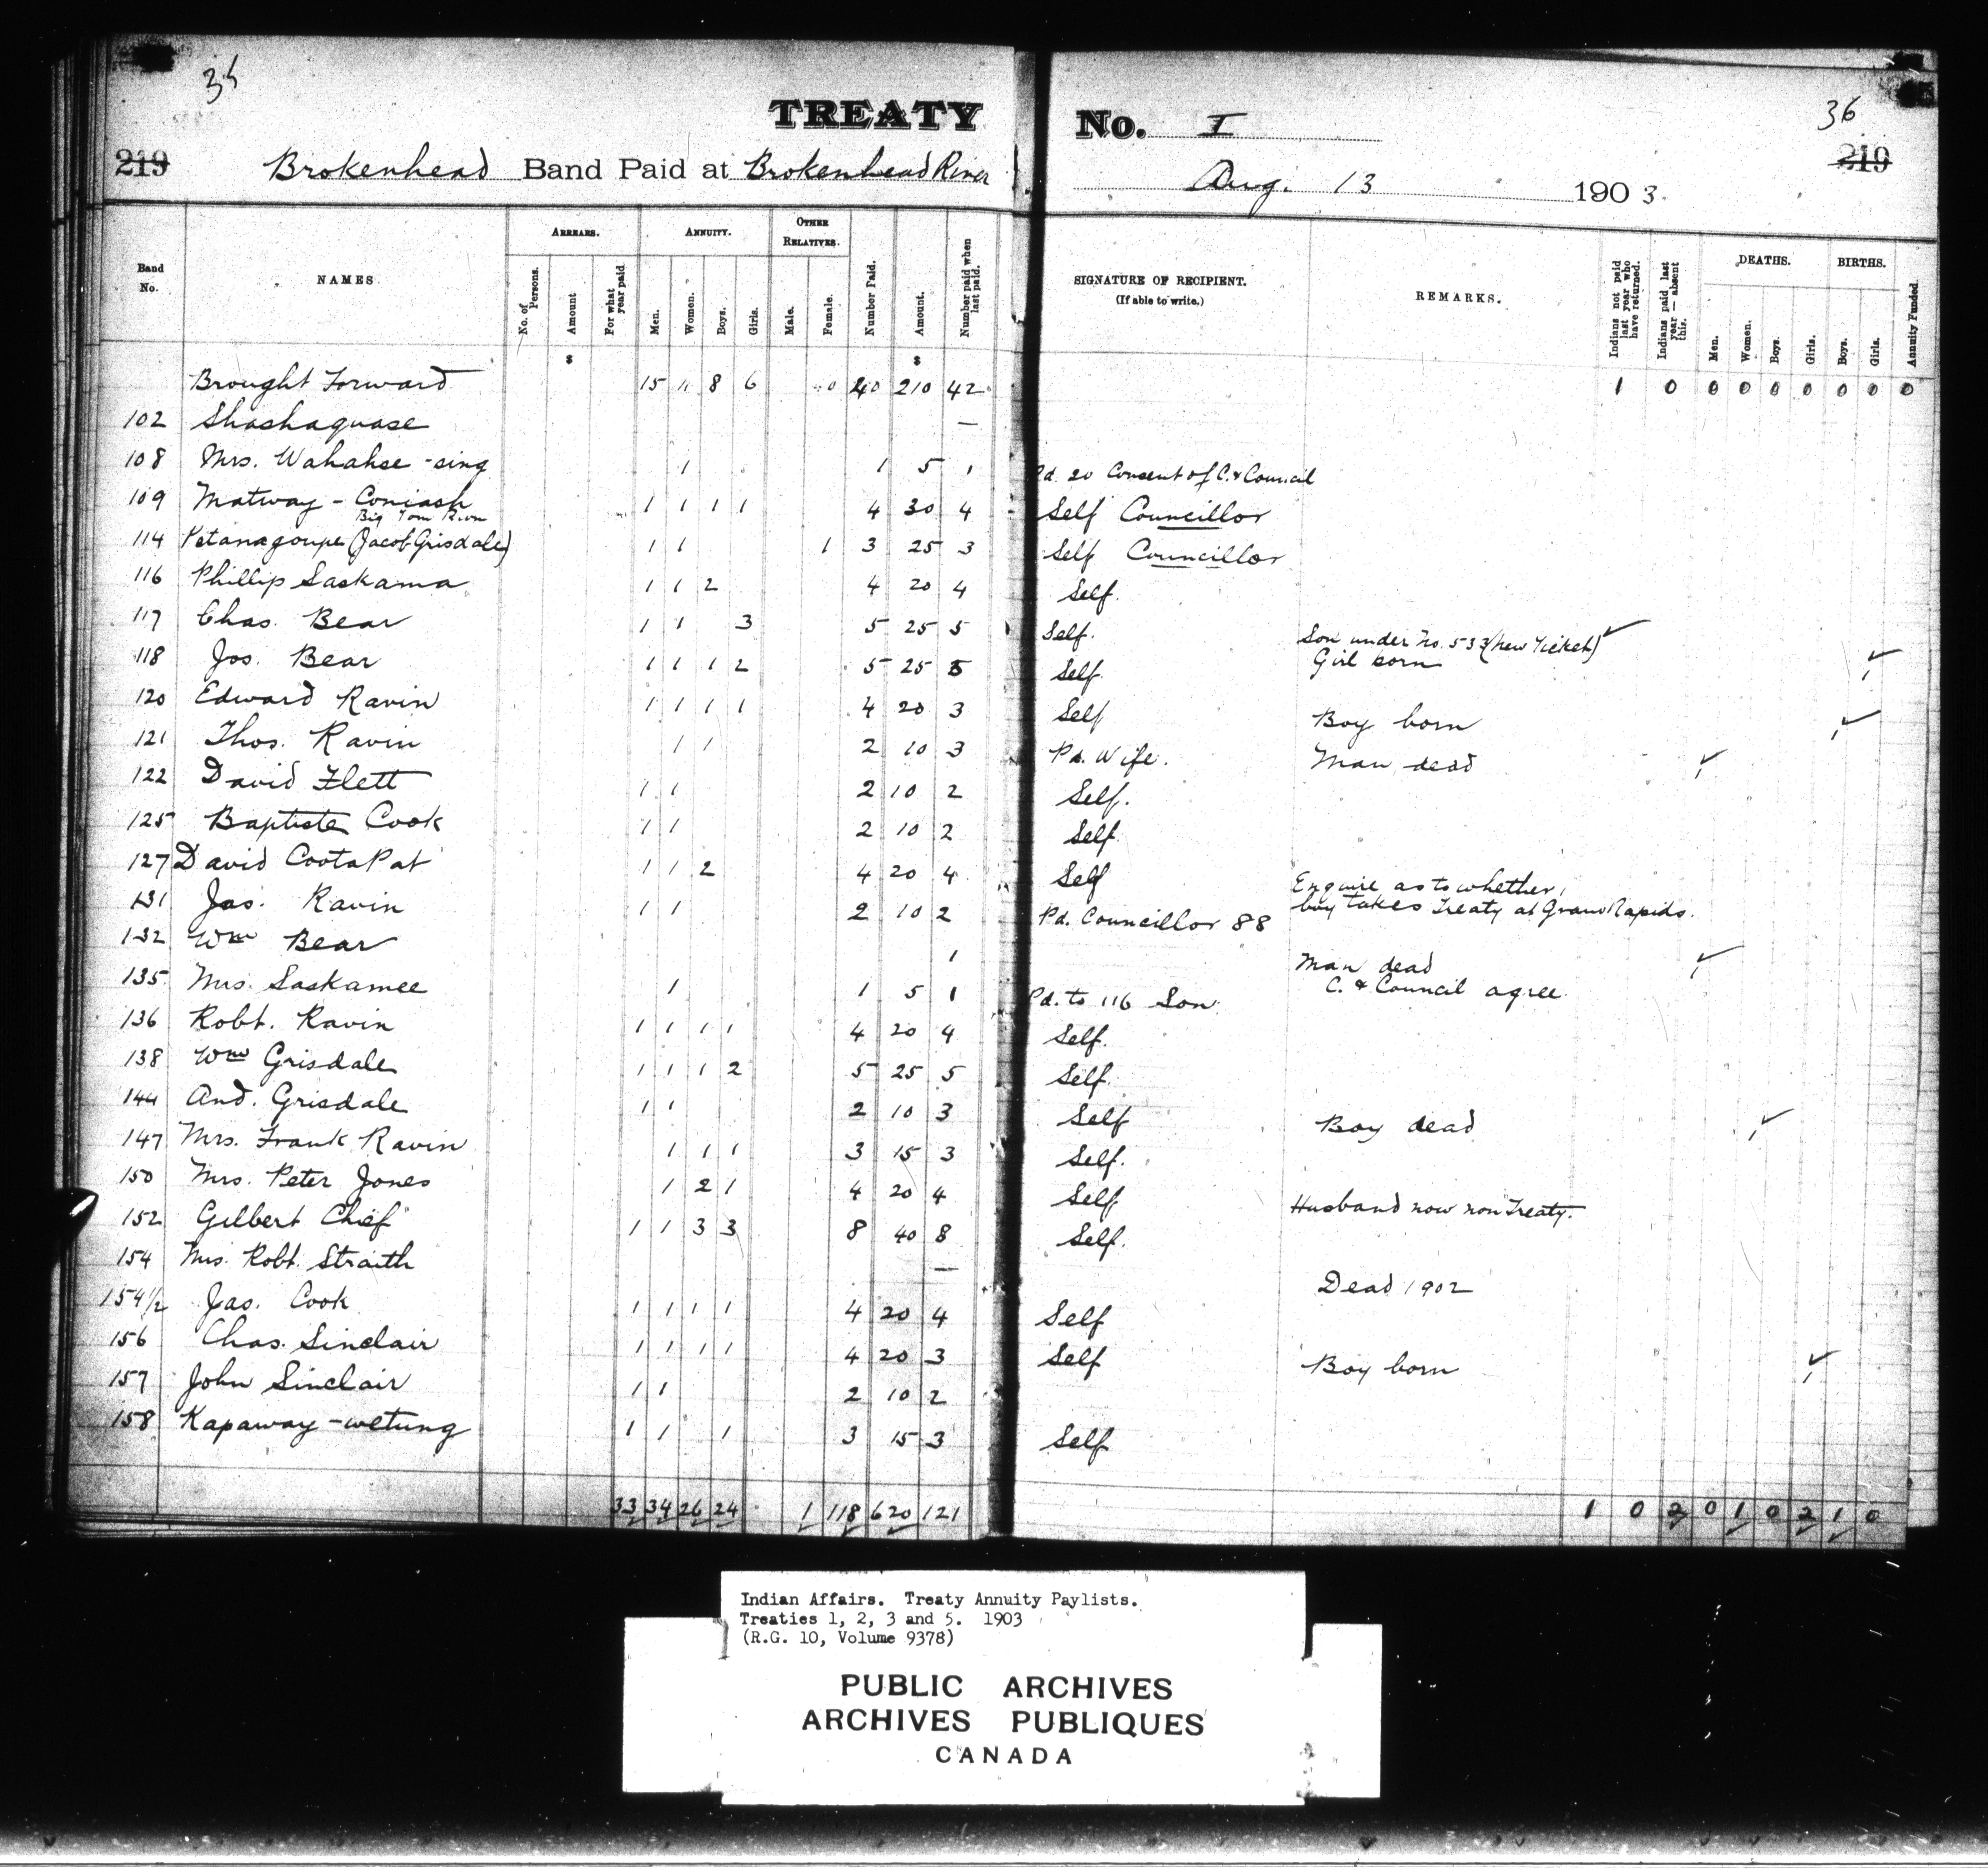 35
TREATY No. I
36
219 Brokenhead Band Paid at Brokenhead River Aug. 13 1903. 219
Band No. NAMES. ARREARS. No. of Persons. Amount For what year paid ANNUITY. Men. Women. Boys. Girls. OTHER RELATIVES. Male. Female. Number Paid. Amount. Number paid when last paid. SIGNATURE OF RECIPIENT. (If able to write.) REMARKS. Indians not paid last year who have returned. Indians paid last year — absent this. DEATHS. Men. Women. Boys. Girls. BIRTHS. Boys. Girls. Annuity Funded.
$ $
Brought Forward 15 11 8 6 0 40 210 42 1 0 0 0 0 0 0 0 0
102 Shashaquase —
108 Mrs. Wahahse-sing 1 1 5 1 Pd. 20 Consent of C. & Council
109 Matway - Coniash 1 1 1 1 4 30 4 Self Councillor
Big Tom
114 Petanagoupe (Jacob Grisdale) 1 1 1 3 25 3 Self Councillor
116 Phillip Saskama 1 1 2 4 20 4 Self.
117 Chas. Bear 1 1 3 5 25 5 Self. Son under No. 533 (New Ticket)
118 Jos. Bear 1 1 1 2 5 25 5 Self. Girl born 1
120 Edward Ravin 1 1 1 1 4 20 3 Self Boy born 1
121 Thos. Ravin 1 1 2 10 3 Pd. Wife. Man dead 1
122 David Flett 1 1 2 10 2 Self.
125 Baptiste Cook 1 1 2 10 2 Self
127 David CootaPat 1 1 2 4 20 4 Self Enquire as to whether
131 Jas. Ravin 1 1 2 10 2 Pd. Councillor 88 boy takes Treaty at Grand Rapids.
132 Wm Bear 1 Man dead 1
135 Mrs. Saskamee 1 1 5 1 Pd. to 116 Son C. & Council agree.
136 Robt. Ravin 1 1 1 1 4 20 4 Self.
138 Wm Grisdale 1 1 1 2 5 25 5 Self.
144 And. Grisdale 1 1 2 10 3 Self Boy dead 1
147 Mrs. Frank Ravin 1 1 1 3 15 3 Self.
150 Mrs. Peter Jones 1 2 1 4 20 4 Self Husband now non Treaty.
152 Gilbert Chief 1 1 3 3 8 40 8 Self.
154 Mrs. Robt. Straith — Dead 1902
154½ Jas. Cook 1 1 1 1 4 20 4 Self
156 Chas. Sinclair 1 1 1 1 4 20 3 Self Boy born 1
157 John Sinclair 1 1 2 10 2
158 Kapaway-wetung 1 1 1 3 15 3 Self
33 34 26 24 1 118 620 121 1 0 2 0 1 0 2 1 0
Indian Affairs. Treaty Annuity Paylists.
Treaties 1, 2, 3 and 5. 1903
(R.G. 10, Volume 9378)
PUBLIC ARCHIVES
ARCHIVES PUBLIQUES
CANADA